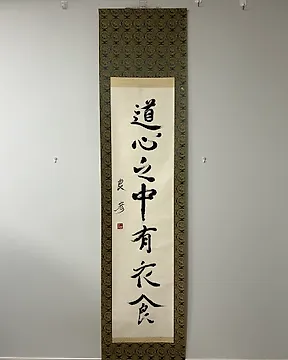 道心之中有衣食
良彦